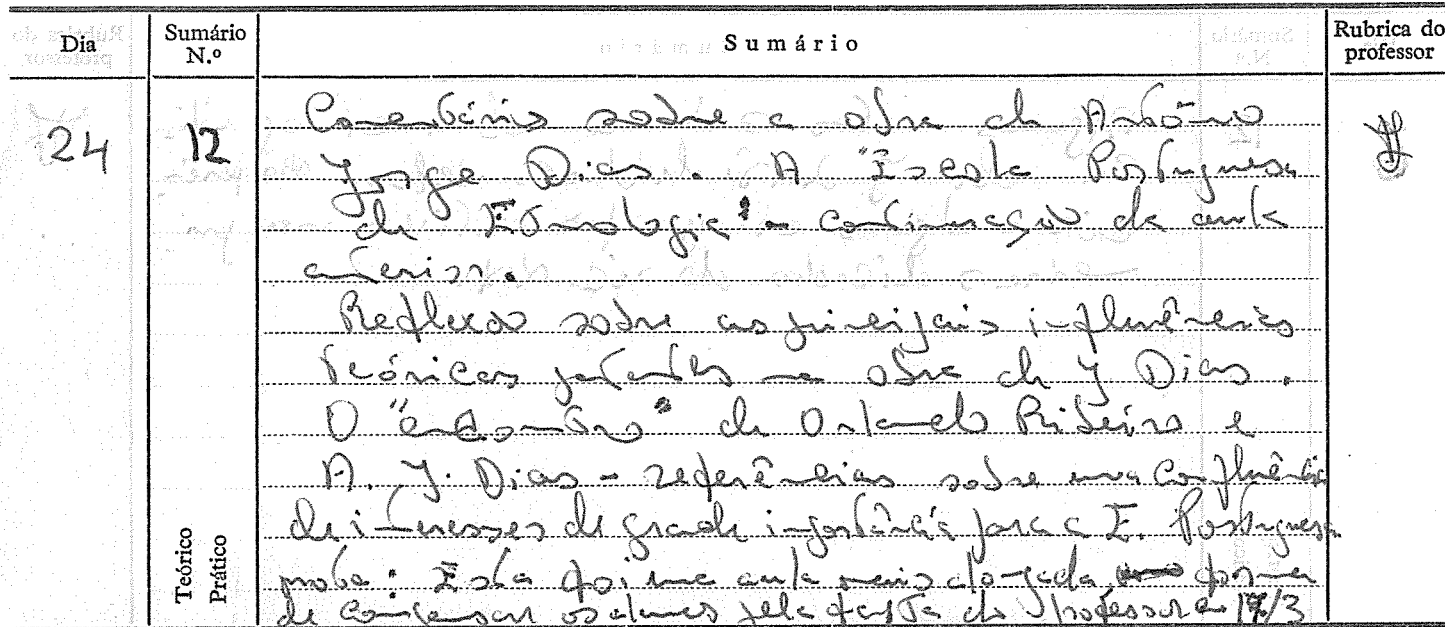 Dia
Sumário N.º
Sumário
Rubrica do professor
24
12
Comentário sobre a obra de António
Jorge Dias. A "Escola Portuguesa
de Etnologia" - continuação da aula
anterior.
Reflexão sobre as principais influências
teóricas patentes na obra de J Dias.
O "encontro" de Orlando Ribeiro e
A. J. Dias - referências sobre uma confluência
de interesses de grande importância para a E. Portuguesa
nota: Esta foi uma aula mais alongada forma
de compensar os alunos pela falta do professor a 17/3
Teórico
Prático